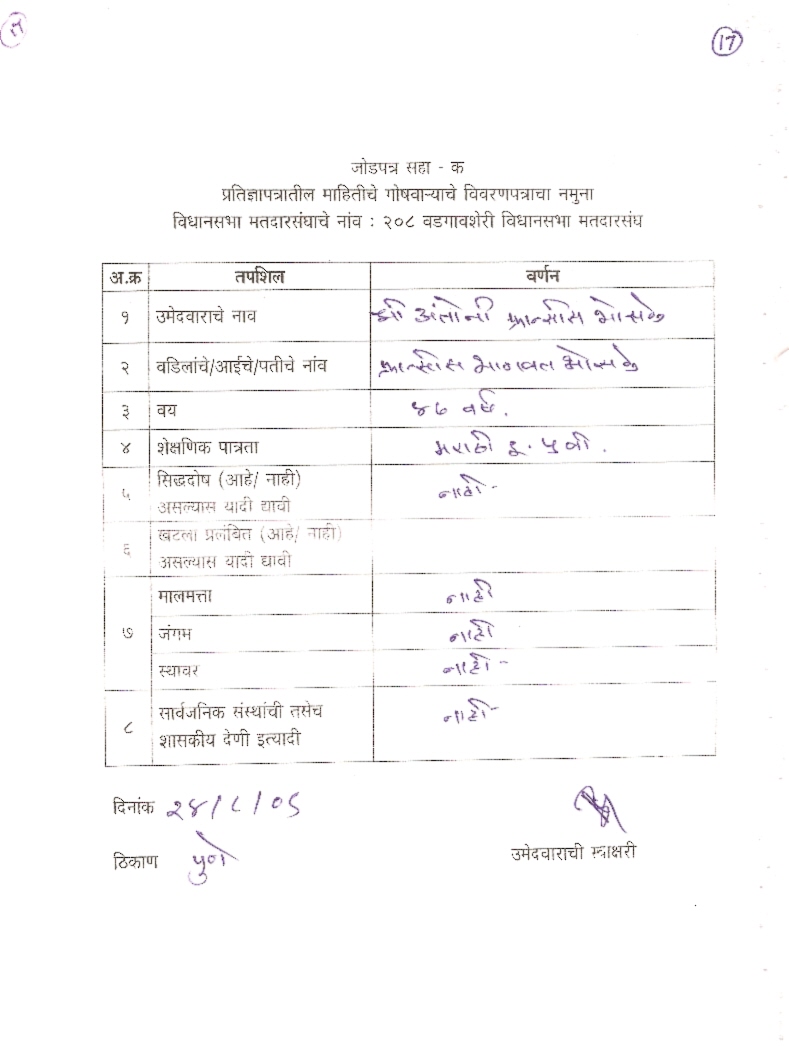 17
जोडपत्र सहा - क
प्रतिज्ञापत्रातील माहितीचे गोषवाऱ्याचे विवरणपत्राचा नमुना
विधानसभा मतदारसंघाचे नांव : २०८ वडगावशेरी विधानसभा मतदारसंघ
अ.क्र तपशिल वर्णन
१ उमेदवाराचे नाव श्री अंतोनी फ्रान्सीस भोसके
२ वडिलांचे/आईचे/पतीचे नांव फ्रान्सीस भागवत भोसके
३ वय ४७ वर्ष.
४ शेक्षणिक पात्रता मराठी इ.
५ सिद्धदोष (आहे/ नाही)
असल्यास यादी द्यावी नाही -
६ खटला प्रलंबित (आहे/ नाही)
असल्यास यादी द्यावी
७ मालमत्ता नाही
जंगम नाही
स्थावर नाही -
८ सार्वजनिक संस्थांची तसेच
शासकीय देणी इत्यादी नाही -
दिनांक
ठिकाण पुणे
उमेदवाराची स्वाक्षरी